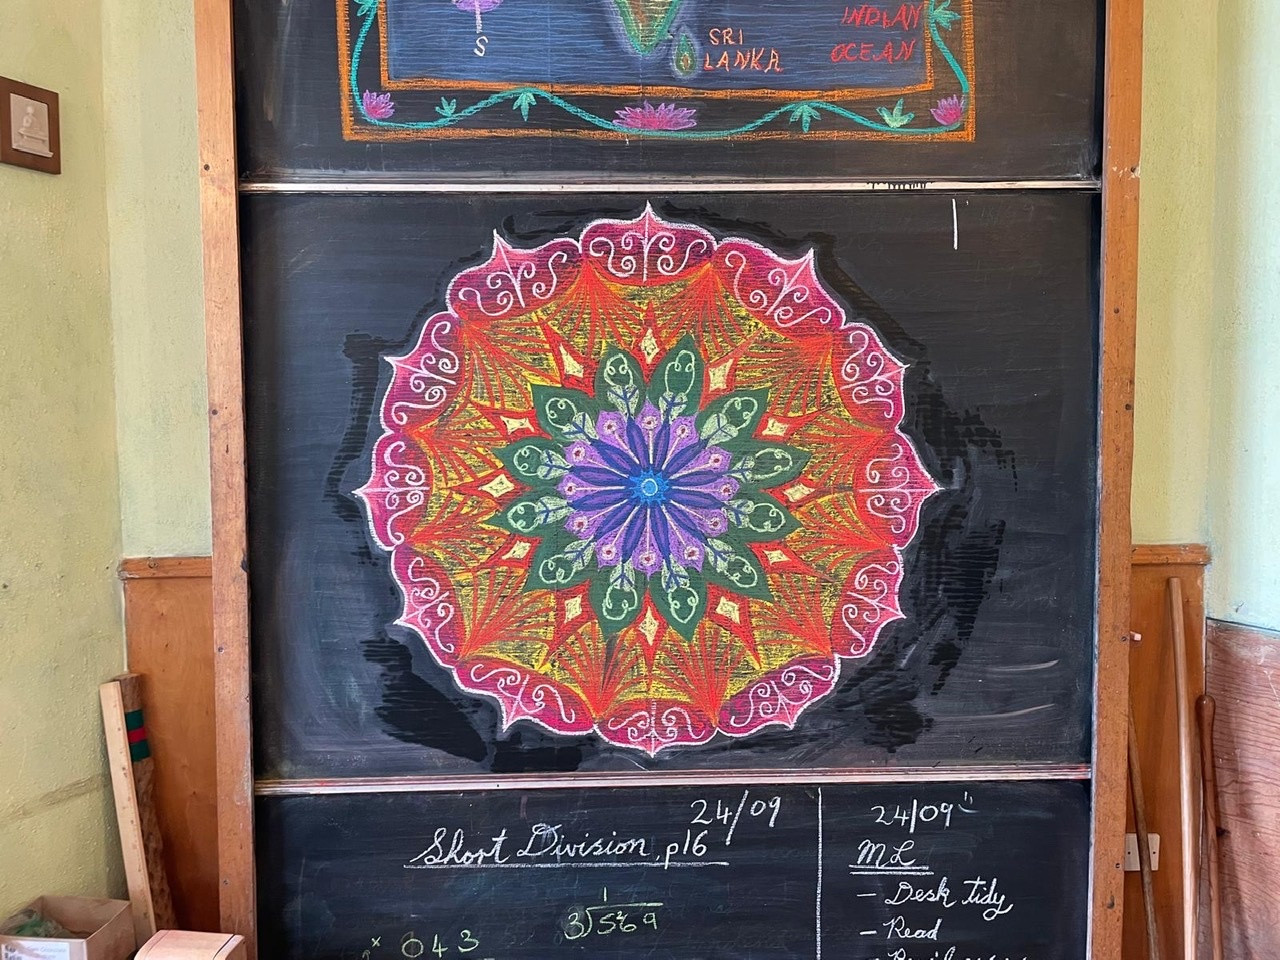 S
SRI
LANKA
INDIAN
OCEAN
24/09
Short Division p16
1
3 5²6 9
× 043
24/09
ML
- Desk tidy
- Read